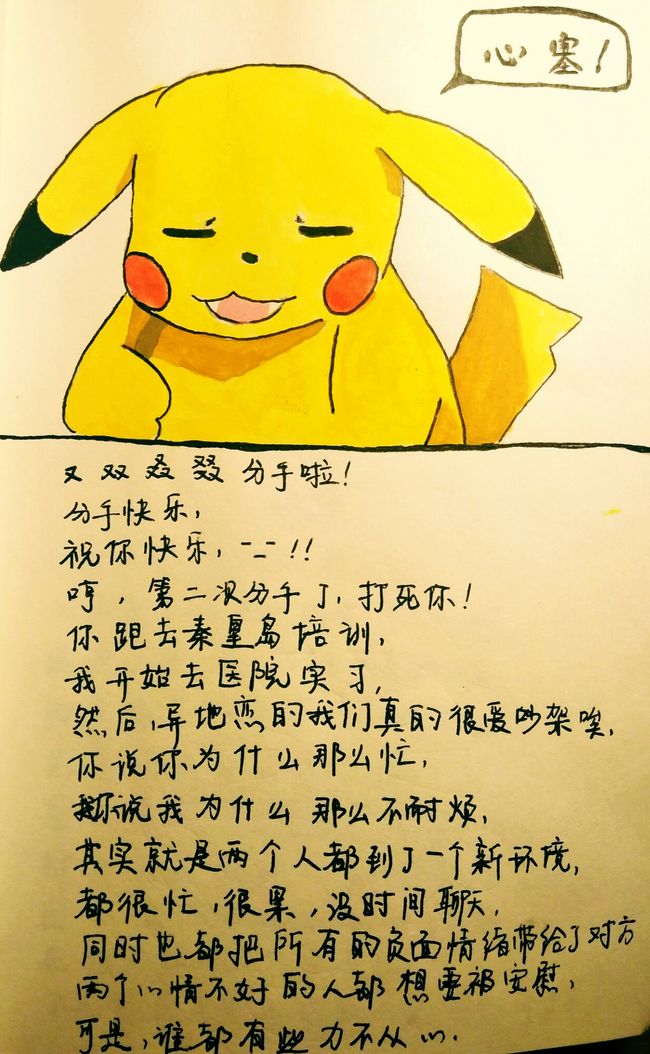 心塞!
又双叒叕分手啦!
分手快乐,
祝你快乐, -_-!!
哼,第二次分手了,打死你!
你跑去秦皇岛培训,
我开始去医院实习,
然后,异地恋的我们真的很爱吵架唉,
你说你为什么那么忙,
你说我为什么那么不耐烦,
其实就是两个人都到了一个新环境,
都很忙,很累,没时间聊天,
同时也都把所有的负面情绪带给了对方
两个心情不好的人都想要被安慰,
可是,谁都有些力不从心.